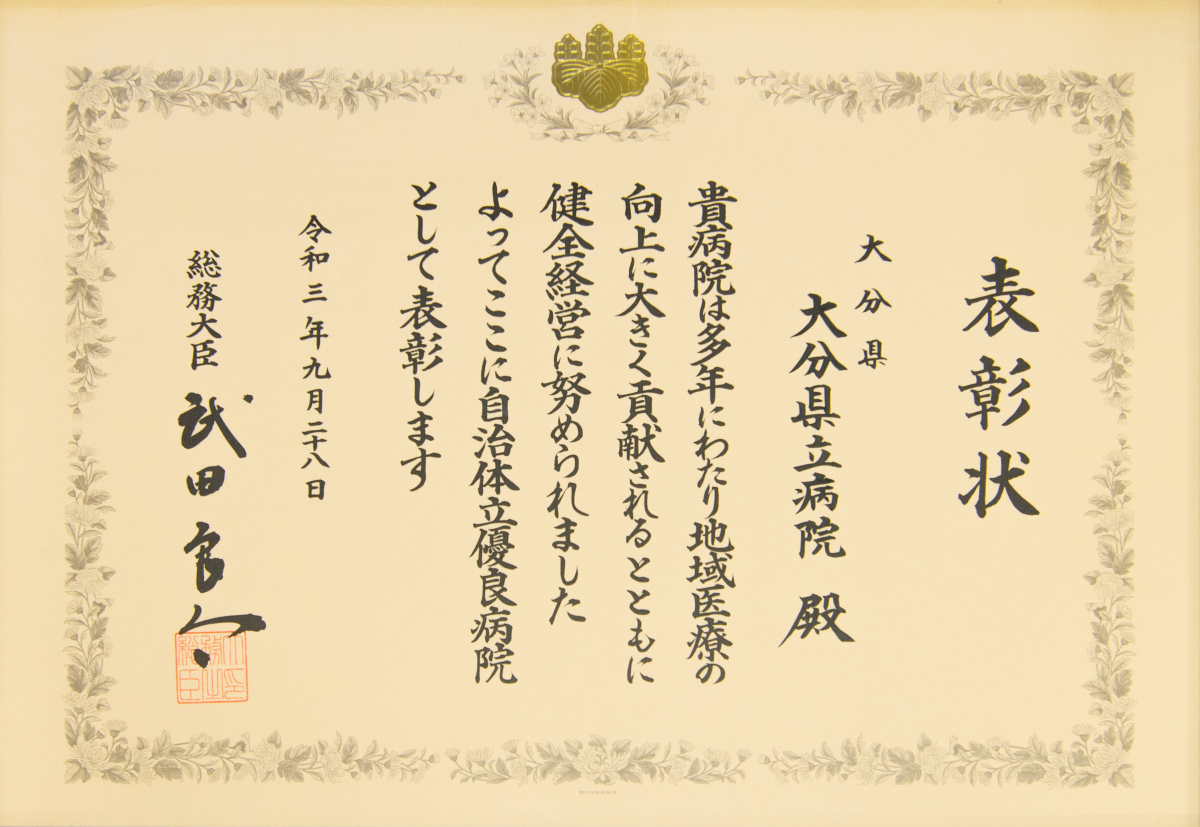 表彰状
大分県
大分県立病院 殿
貴病院は多年にわたり地域医療の
向上に大きく貢献されるとともに
健全経営に努められました
よってここに自治体立優良病院
として表彰します
令和三年九月二十八日
総務大臣 武田良太